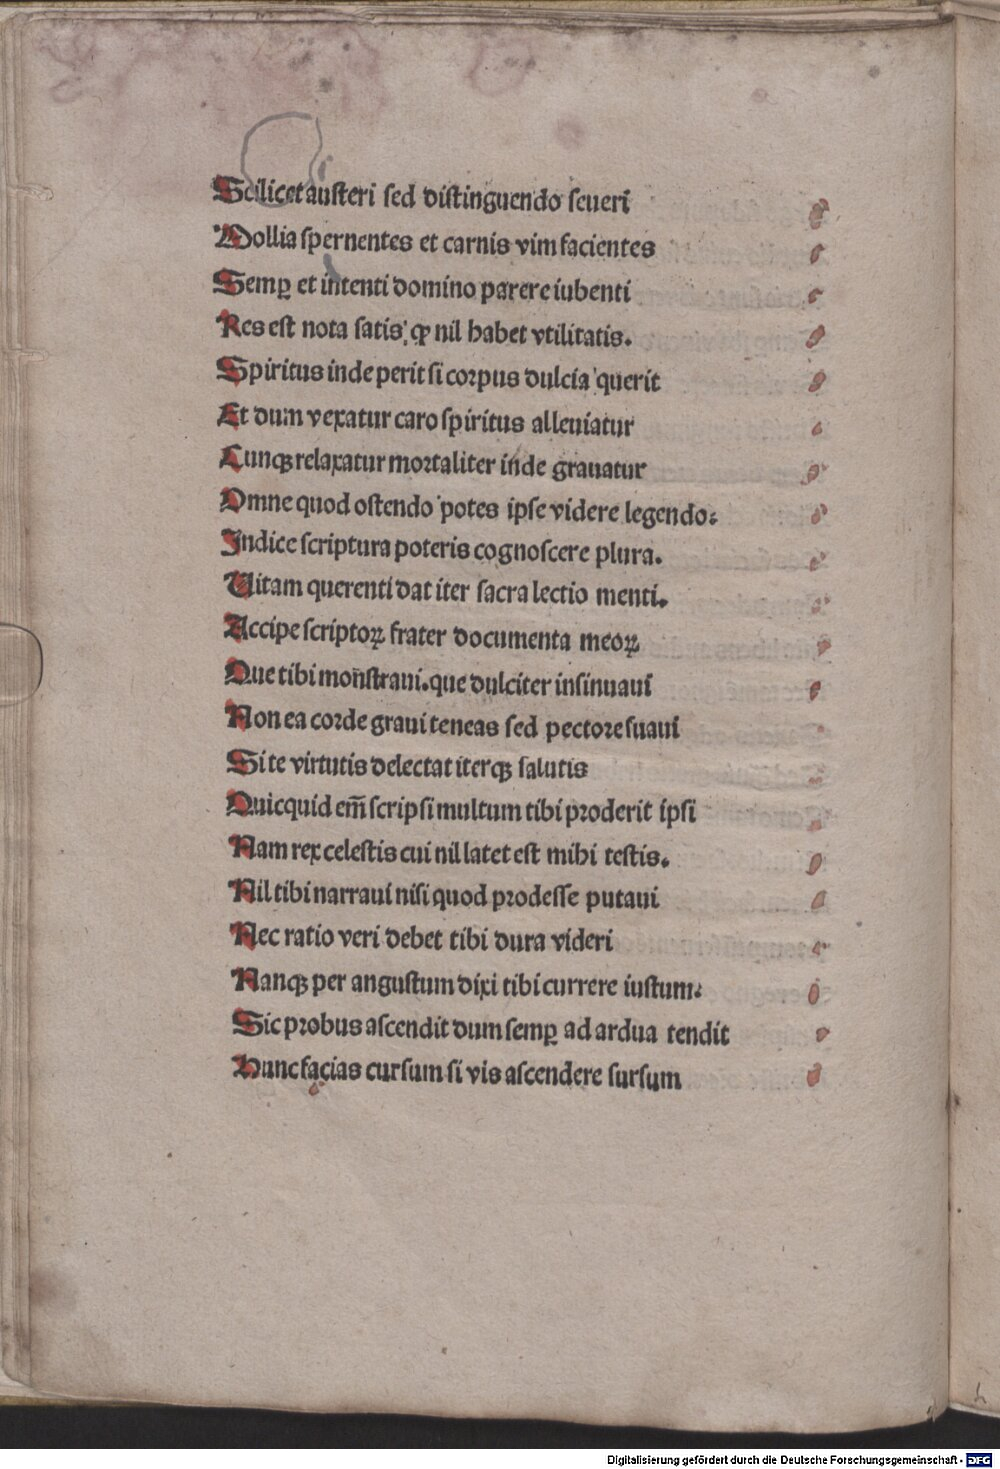 Scilicet austeri sed distinguendo seueri
Mollia spernentes et carnis vim facientes
Semꝑ et intenti domino parere iubenti
Res est nota satis ꝙ nil habet vtilitatis.
Spiritus inde perit si corpus dulcia querit
Et dum vexatur caro spiritus alleuiatur
Cunqꝫ relaxatur mortaliter inde grauatur
Omne quod ostendo potes ipse videre legendo:
Indice scriptura poteris cognoscere plura.
Uitam querenti dat iter sacra lectio menti.
Accipe scriptoꝝ frater documenta meoꝝ
Que tibi monstraui. que dulciter insinuaui
Non ea corde graui teneas sed pectore suaui
Si te virtutis delectat iterqꝫ salutis
Quicquid em̄ scripsi multum tibi proderit ipsi
Nam rex celestis cui nil latet est mihi testis.
Nil tibi narraui nisi quod prodesse putaui
Nec ratio veri debet tibi dura videri
Nanqꝫ per angustum dixi tibi currere iustum:
Sic probus ascendit dum semꝑ ad ardua tendit
Hunc facias cursum si vis ascendere sursum
Digitalisierung gefördert durch die Deutsche Forschungsgemeinschaft - DFG